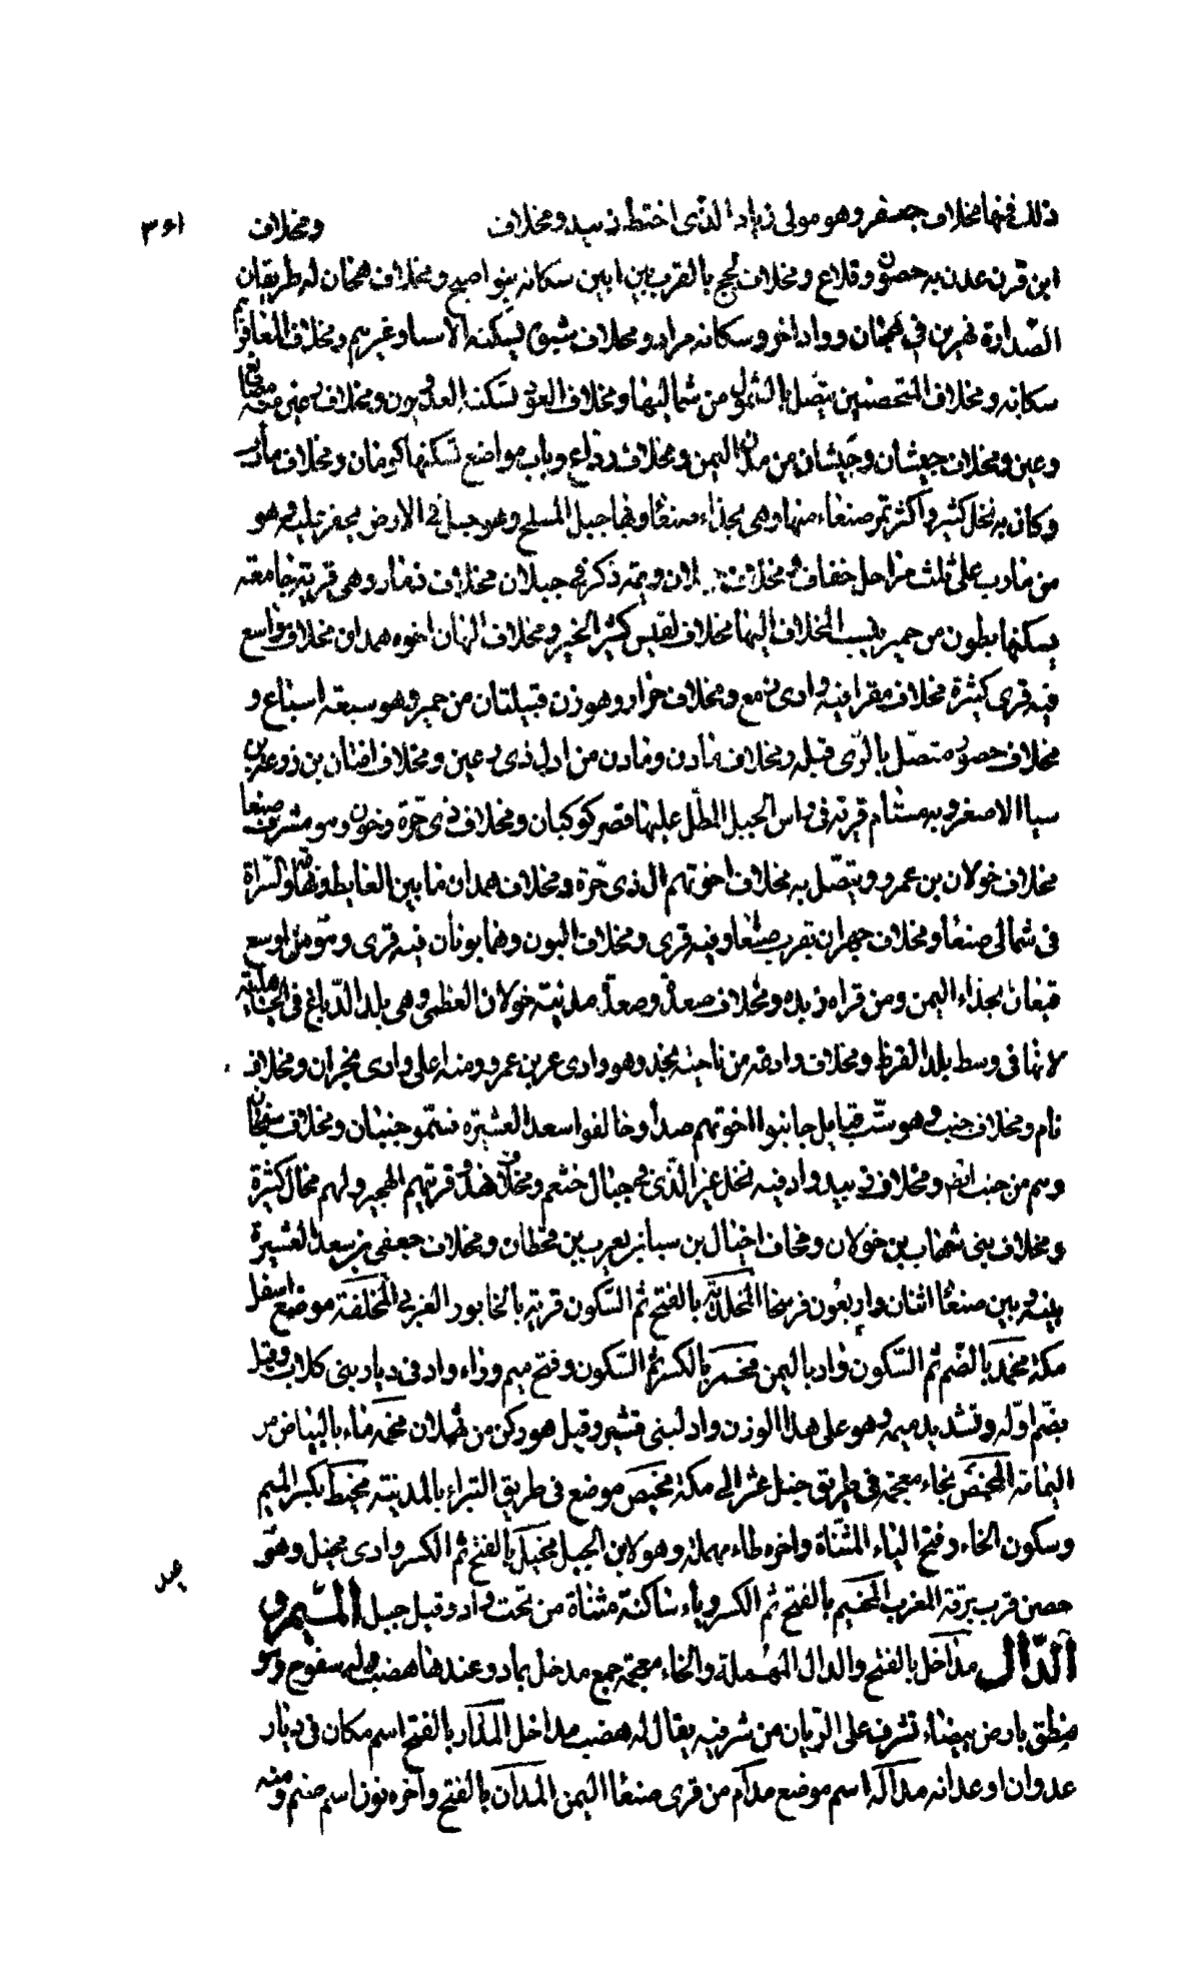 ذلك فمنها مخلاف جعفر وهو مولى زياد الذى اختط زبيد ومخلاف ومخلاف
ابن قرن عدن به حصون وقلاع ومخلاف لحج بالقرب بين ابين سكانه بنو اصبح ومخلاف همان له طريقان
الصدارة نهرين فى وواد اخر وسكانه مراد ومخلاف شبوة يسكنه الاسبا وغيرهم ومخلاف المعافر
سكانه ومخلاف يتصل من شماليها ومخلاف العود يسكنه العدويون ومخلاف رعين
وعين ومخلاف جيشان وجيشان من مدن اليمن ومخلاف رداع وباب مواضع تسكنها كومان ومخلاف مارب
وكان به نخل كثير واكثر تمر صنعاء منها وهى بحذاء صنعا وبها جبل الملح وهو جبل فى الارض يحفر عليه وهو
من مارب على ثلث مراحل خفاف ومخلاف جبلان وريمة ذكر فى جبلان مخلاف ذمار وهى قرية جامعة
يسكنها بطون من حمير ينسب المخلاف اليها مخلاف كثير الخير ومخلاف الهان اخوه همدان مخلاف واسع
فيه قرى كثيرة مخلاف مقرا فيه وادى رمع ومخلاف حراز وهوزن قبيلتان من حمير وهو سبعة اسباع و
مخلاف حضور متصل بالذى قبله ومخلاف مادن ومادن من ال ذى رعين ومخلاف اقيان بن زرعة بن
سبا الاصغر وبه شبام قرية فى راس الجبل المطل عليها قصر كوكبان ومخلاف ذى جرة وخولان وهو مشرف صنعا
مخلاف خولان بن عمرو ويتصل به مخلاف اخوتهم ال ذى جرة ومخلاف همدان ما بين الغايط وتهامة والسراة
فى شمالى صنعا ومخلاف جهران بقرب صنعا وفيه قرى ومخلاف البون وهما بونان فيه قرى وهو من اوسع
قيعان بحذاء اليمن ومن قراه ريده ومخلاف صعدة وصعدة مدينة خولان العظمى وهى بلد الدباغ فى الجاهلية
لانها فى وسط بلد القرظ ومخلاف وادعة من ناحية نجد وهو وادى عر بن عمرو ومنه اعلى وادى نجران ومخلاف
يام ومخلاف جنب وهو ست قبايل جانبوا اخوتهم صدا وحالفوا سعد العشيرة فسموا جنبان ومخلاف سنحان
وهم من جنب ايضا ومخلاف زبيد واد فيه نخل غير الذى فى جبال خثعم ومخلاف نهد وقريتهم الهجير ولهم محال كثيرة
ومخلاف بنى شهاب بن خولان ومخلاف اخبال بن سبا بن يعرب بن قحطان ومخلاف جعفى بن سعد العشيرة
بينه وبين صنعا اثنان واربعون فرسخا المخلدية بالفتح ثم السكون قرية بالخابور الغربى المخلفة موضع اسفل
مكة مخمد بالضم ثم السكون واد باليمن مخمر بالكسر ثم السكون وفتح ميم وراء واد فى ديار بنى كلاب وقيل
بضم اوله وتشديد ميمه وهو على هذا الوزن واد لبنى قشير وقيل هو ركن من ثهلان مخمة ماء بالبياض من
اليمامة المخمص بخاء معجمة فى طريق جبل عير الى مكة مخيص موضع فى طريق التبراء بالمدينة مخيط بكسر الميم
وسكون الخاء وفتح الياء المثناة واخره طاء مهملة وهو لابن الجبيل مخيل بالفتح ثم الكسر وادى مخيل وهو
حصن قرب برقة المغرب المخيم بالفتح ثم الكسر وياء ساكنة مثناة من تحت واد وقيل جبل الميم و
الدال مداخل بالفتح والدال المهملة والخاء معجمة جمع مدخل ماء وعندها هضب له سفوح وهو
منطق بارض بيضاء تشرف على الريان من شرقيه يقال له هضب مداخل المدار بالفتح اسم مكان فى ديار
عدوان او عدانه مداله اسم موضع مدام من قرى صنعا اليمن المدان بالفتح واخره نون اسم صنم ومنه